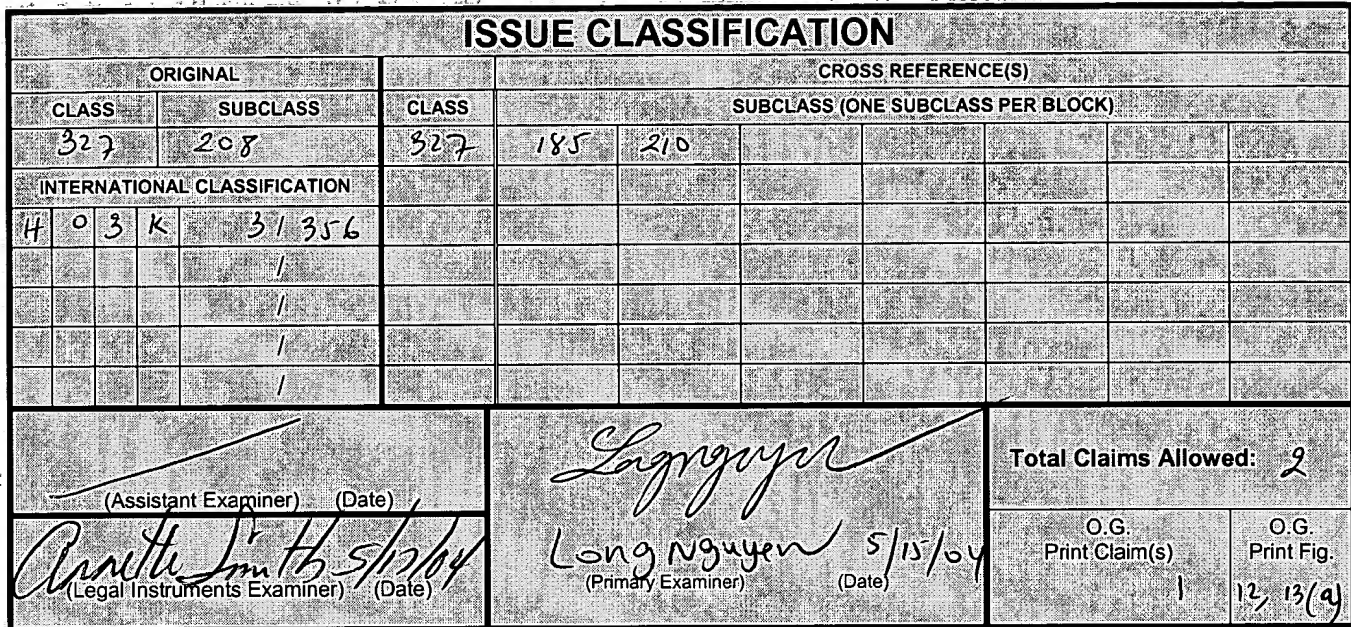 ISSUE CLASSIFICATION
ORIGINAL CROSS REFERENCE(S)
CLASS SUBCLASS CLASS SUBCLASS (ONE SUBCLASS PER BLOCK)
327 208 327 185 210
INTERNATIONAL CLASSIFICATION
H 0 3 K 3/ 356
/
/
/
/
Total Claims Allowed: 2
(Assistant Examiner) (Date)
Annette Smith
(Legal Instruments Examiner) (Date)
Long Nguyen 5/15/04
(Primary Examiner) (Date)
O.G. Print Claim(s)
1
O.G. Print Fig.
12, 13(a)